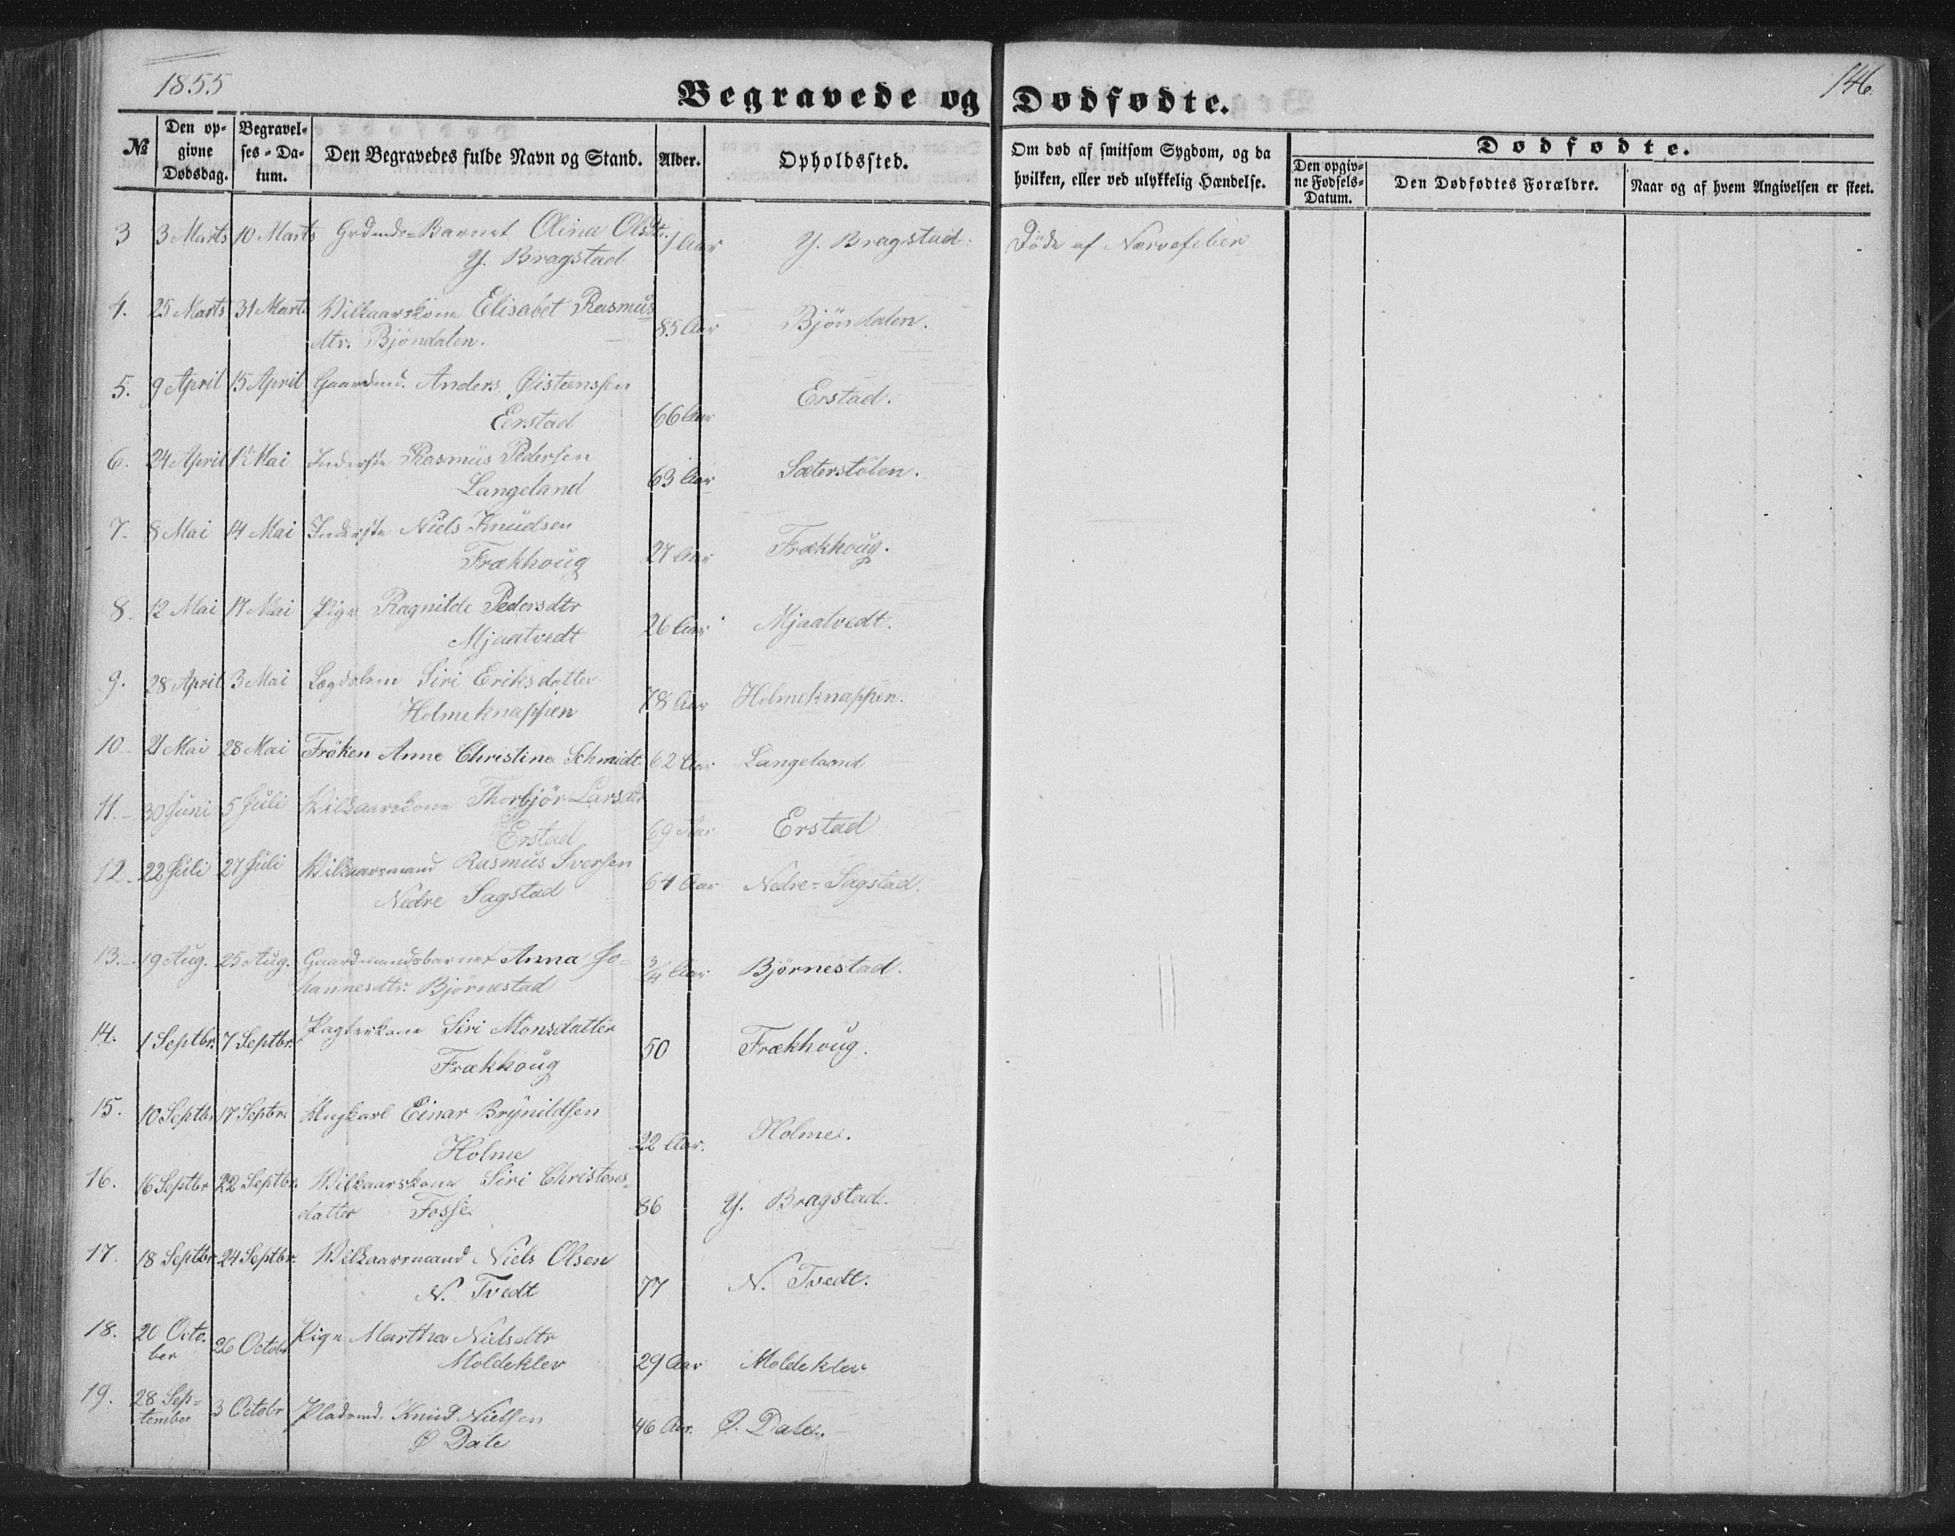 1855
146.
Begravede og Dødfødte.
№
Den opgivne Dødsdag.
Begravelses-Datum.
Den Begravedes fulde Navn og Stand.
Alder.
Opholdssted.
Om død af smitsom Sygdom, og da hvilken, eller ved ulykkelig Hændelse.
Dødfødte.
Den opgivne Fødsels-Datum.
Den Dødfødtes Forældre.
Naar og af hvem Angivelsen er skeet.
3 3 Marts 10 Marts Grdmds-Barnet Olina Olsdtr. 1 Aar Y. Bragstad. Döde af Nervefeber
Y. Bragstad
4. 25 Marts 31 Marts Vilkaarskone Elisabet Rasmus
dtr. Bjöndalen. 85 Aar Bjöndalen.
5. 9 April 15 April Gaardmd. Anders Øistensen Erstad.
Erstad 66 Aar
6. 24 April 1 Mai Inderste Rasmus Pedersen
Langeland 63 Aar Sæterstölen.
7. 8 Mai 14 Mai Inderste Niels Knudsen
Frækhoug 27 Aar Frækhoug.
8. 12 Mai 17 Mai Pige Ragnilde Pedersdtr
Mjaatvedt 26 Aar Mjaatvedt.
9. 28 April 3 Mai Lægdslem Siri Eriksdatter
Holmeknappen 78 Aar Holmeknappen.
10. 21 Mai 28 Mai Fröken Anne Christine Schmidt 62 Aar Langeland
11. 30 Juni 5 Juli Vilkaarskone Thorbjör Larsdtr
Erstad 69 Aar Erstad
12. 22 Juli 27 Juli Vilkaarsmand Rasmus Iversen
Nedre Sagstad 64 Aar Nedre-Sagstad.
13. 19 Aug. 25 Aug. Gaardmandsbarnet Anna Jo-
hannesdtr. Björnestad 3/4 Aar Björnestad.
14. 1 Septbr. 7 Septbr. Pagterkone Siri Monsdatter
Frækhoug 50 Frækhoug.
15. 10 Septbr 17 Septbr. Ungkarl Einar Brynildsen
Holme 22 Aar. Holme.
16. 16 Septbr 22 Septbr. Vilkaarskone Siri Christens-
datter Fosse 86 Y. Bragstad.
17. 18 Septbr. 24 Septbr. Vilkaarsmand Niels Olsen
N. Tvedt 77 N. Tvedt.
18. 20 Octo-
ber 26 Octobr Pige Martha Nielsdtr
Moldeklev 29 Aar Moldeklev
19. 28 Sep-
tember 3 Octobr Pladsmd. Knud Nielsen
Ø Dale 46 Aar. Ø. Dale.